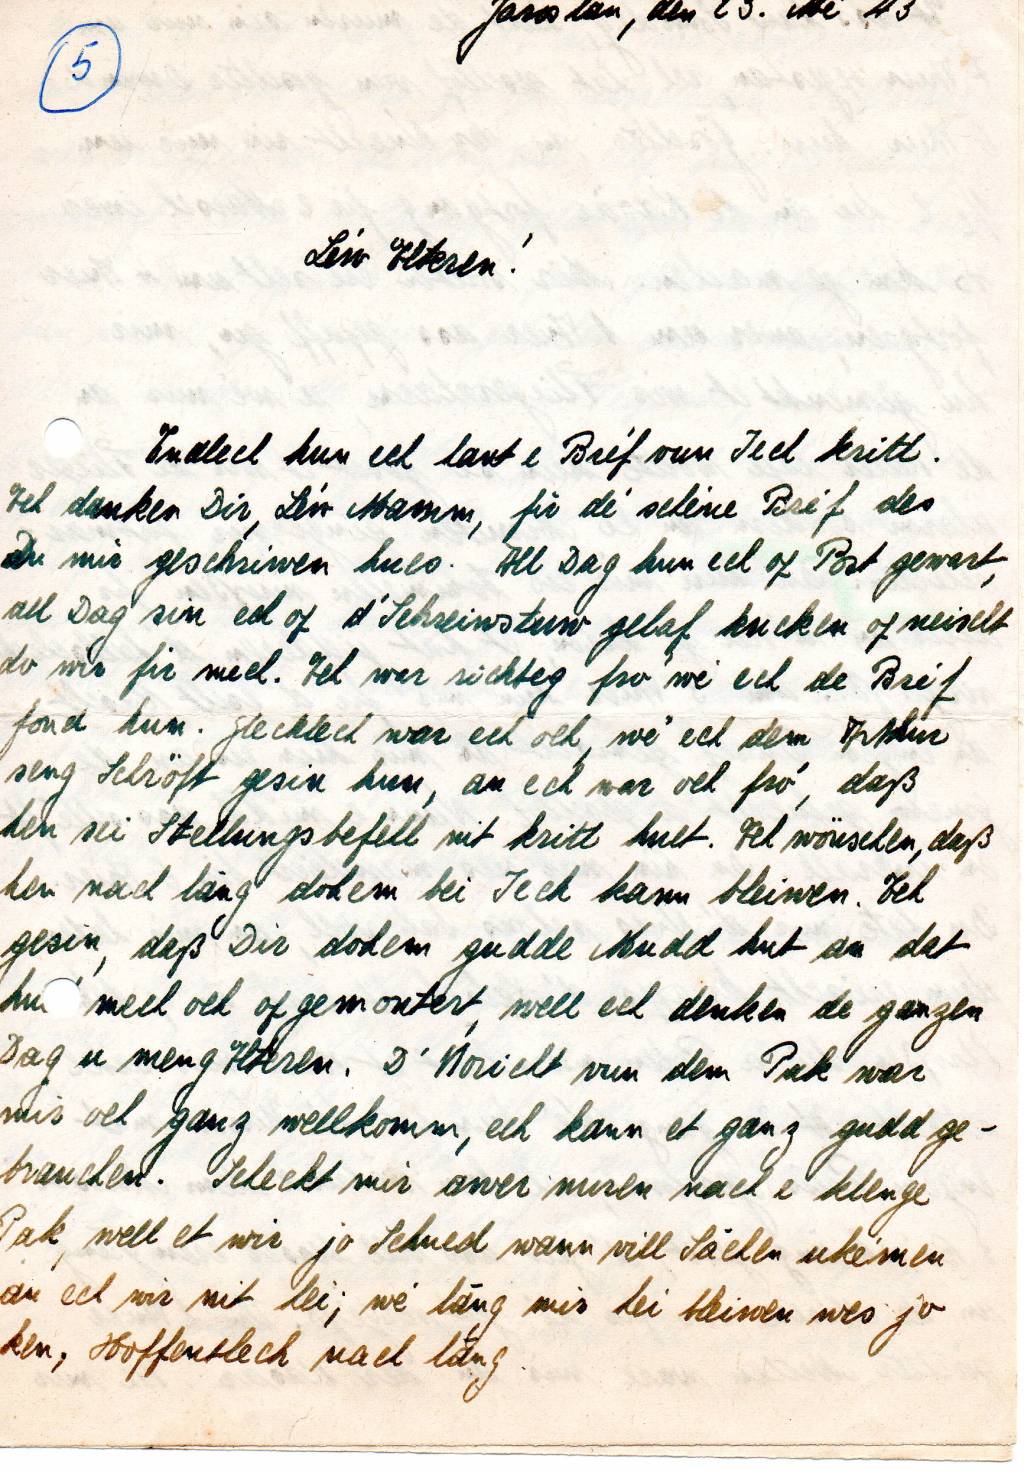 Jaroslau, den 23. Mé 43
5
Léiw Elteren!
Endlech hun ech laut e Bréf vun Iech kritt.
Ech danken Dir, Léiw Mamm, fir dé schéine Bréf des
Du mir geschriwen hues. All Dag hun ech of Post gewart,
all Dag sin ech of d'Schreiwstuw gelaf kucken of neischt
do wir fir mech. Ech war richteg fro' wé ech de Bréf
fond hun. Glecklech war ech och, wé ech dem Arthur
seng Schröft gesin hun, an ech war och fro', daß
hen sei Stellungsbefell nit kritt huet. Ech wönschen, daß
hen nach läng dohem bei Iech kann bleiwen. Ech
gesin, daß Dir dohem gudde Mudd hut an dat
hu' mech och ofgemontert, well ech denken de ganzen
Dag u meng Elteren. D'Noricht vun dem Pak war
mir och ganz wellkomm, ech kann et ganz gudd ge-
brauchen. Scheckt mir awer nuren nach e klenge
Pak, well et wir jo Schued wann vill Sächen ukémen
an ech wir nit hei; wé läng mir hei bleiwen wes jo
ken, Hoffentlech nach läng.